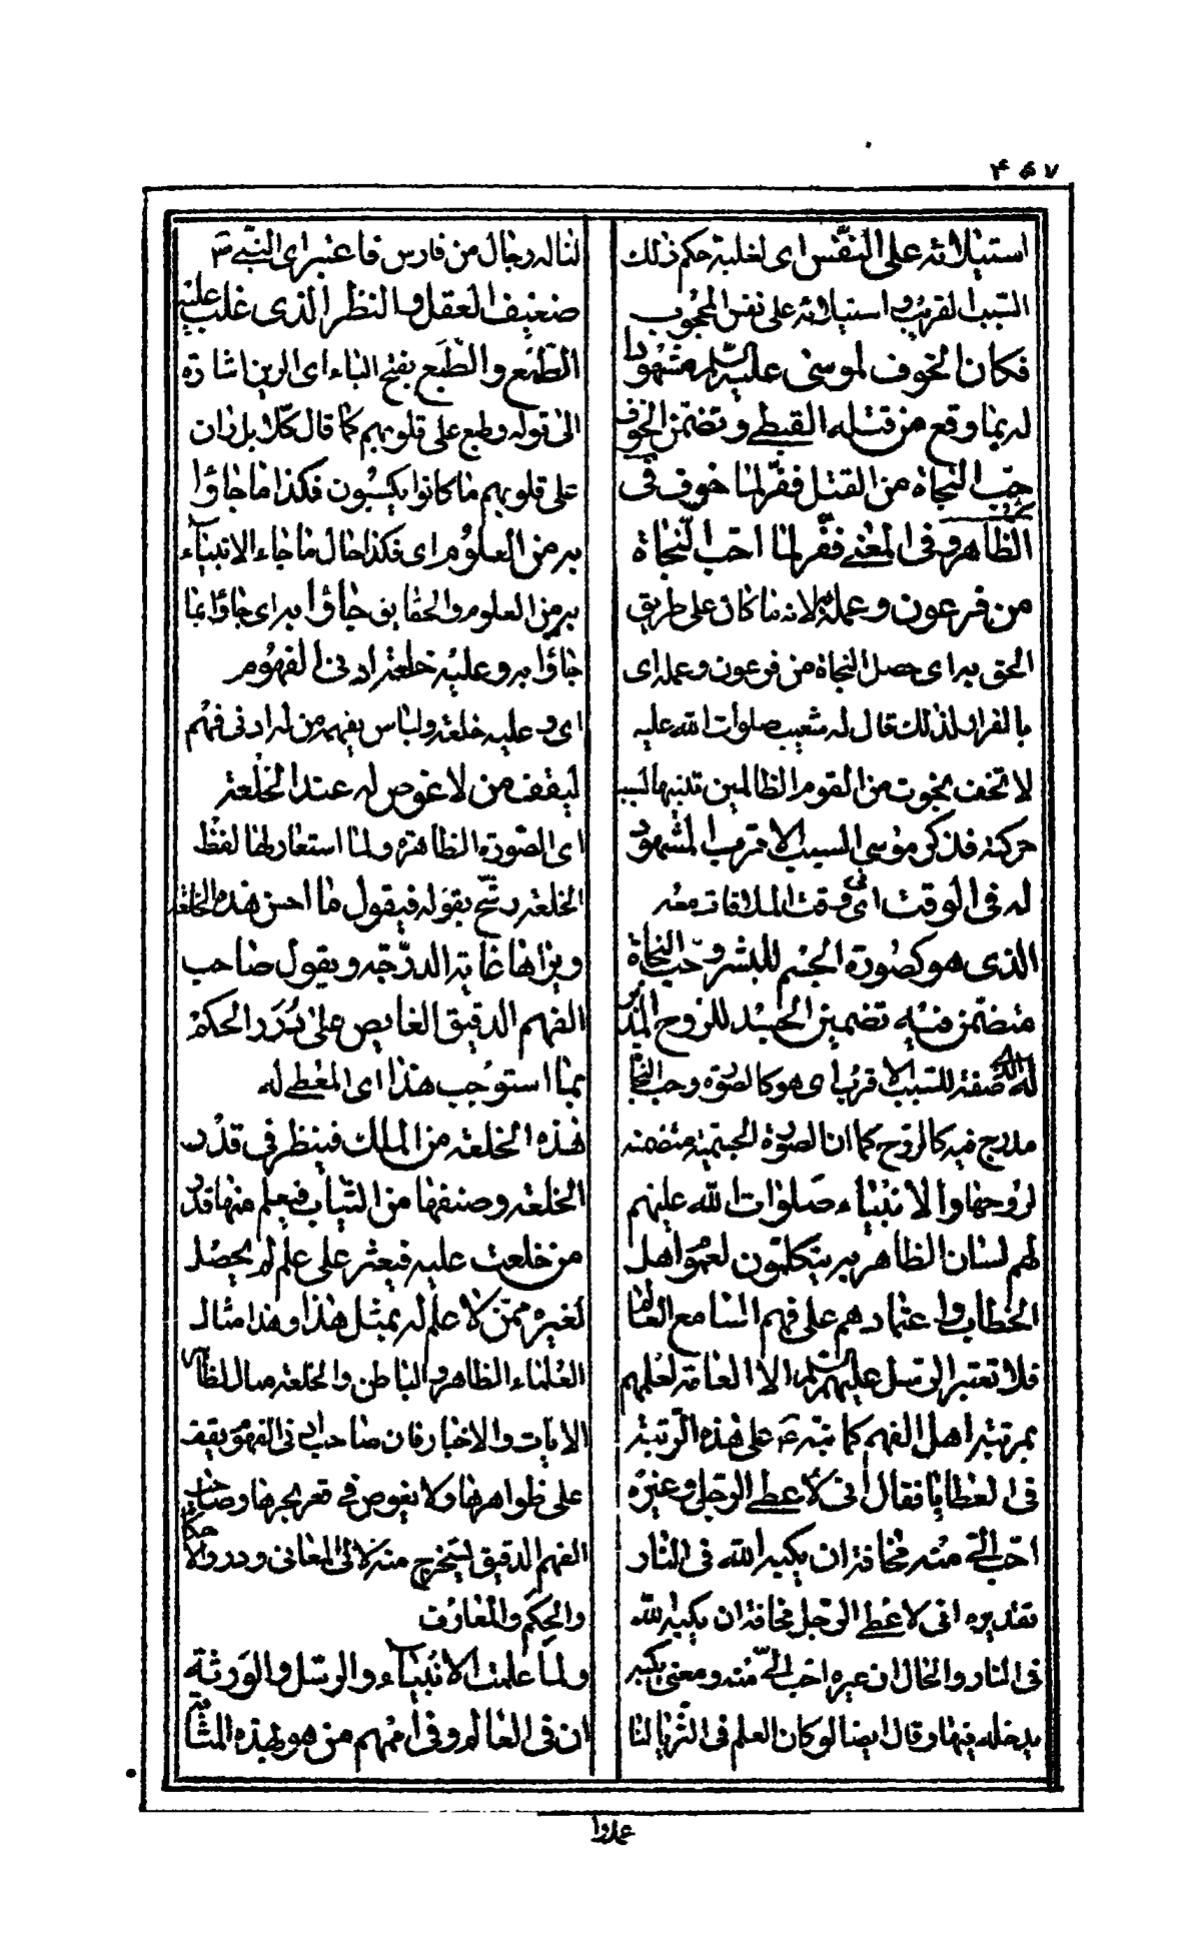 ۴۵۷
استيلائه على النفس اى لغلبة حكم ذلك
السبب القريب و استيلائه على نفس المحجوب
فكان الخوف لموسى عليه السلم مشهودا
له بما وقع من قتله القبطى و تضمن الخوف
حب النجاة من القتل ففر لما خوف فى
الظاهر و فى المعنى ففر لما احب النجاة
من فرعون و عمله به لانه ما كان على طريق
الحق به اى حصل النجاة من فرعون و عمله اى
بالفرار لذلك قال له شعيب صلوات الله عليه
لا تخف نجوت من القوم الظالمين تنبيها لسبب
حركته فذكر موسى السبب الاقرب المشهود
له فى الوقت اى فى وقت الملاقات معه
الذى هو كصورة الجسم للبشر و حب النجاة
متضمن فيه تضمين الجسد للروح المدبر
له صفة للسبب الاقرب اى هو كالصورة و حب النجاة
مدرج فيه كالروح كما ان الصورة الجسمية متضمنة
لروحها و الانبياء صلوات الله عليهم
لهم لسان الظاهر به يتكلمون لعموم اهل
الخطاب و اعتمادهم على فهم السامع العالم
فلا تعتبر الرسل عليهم السلم الا العامة لعلمهم
بمرتبة اهل الفهم كما نبه عم على هذه الرتبة
فى العطايا فقال انى لاعطى الرجل و غيره
احب الى منه مخافة ان يكبه الله فى النار
تقديره انى لاعطى الرجل مخافة ان يكبه الله
فى النار و الحال ان غيره احب الى منه و معنى يكبه
يدخله فيها و قال ايضا لو كان العلم فى الثريا لنا
لناله رجال من فارس فاعتبر اى النبى ص
ضعيف العقل و النظر الذى غلب عليه
الطمع و الطبع بفتح الباء اى الرين اشارة
الى قوله و طبع على قلوبهم كما قال كلا بل ران
على قلوبهم ما كانوا يكسبون فكذا ما جاؤا
به من العلوم اى فكذا حال ما جاء الانبياء
به من العلوم و الحقايق جاؤا به اى جاؤا بما
جاؤا به و عليه خلعة ادنى الفهوم
اى و عليه خلعة و لباس يفهمه من له ادنى فهم
ليقف من لا غوص له عند الخلعة
اى الصورة الظاهرة و لما استعار لها لفظ
الخلعة رشح بقوله فيقول ما احسن هذه الخلعة
و يراها غاية الدرجة و يقول صاحب
الفهم الدقيق الغايص على درر الحكم
بما استوجب هذا اى المعطى له
هذه الخلعة من الملك فينظر فى قدر
الخلعة و صنفها من الثياب فيعلم منها قدر
من خلعت عليه فيعثر على علم لم يحصل
لغيره ممن لا علم له بمثل هذا و هذا مثال
العلماء الظاهر و الباطن و الخلعة مثال لظاهر
الايات و الاخبار فان صاحب ادنى الفهوم يقف
على ظواهرها و لا يغوص فى قعر بحرها و صاحب
الفهم الدقيق يستخرج منه لالى المعانى و درر الاحكام
و الحكم و المعارف
و لما علمت الانبياء و الرسل و الورثة
ان فى العالم و فى اممهم من هو بهذه المثابة
عمدوا